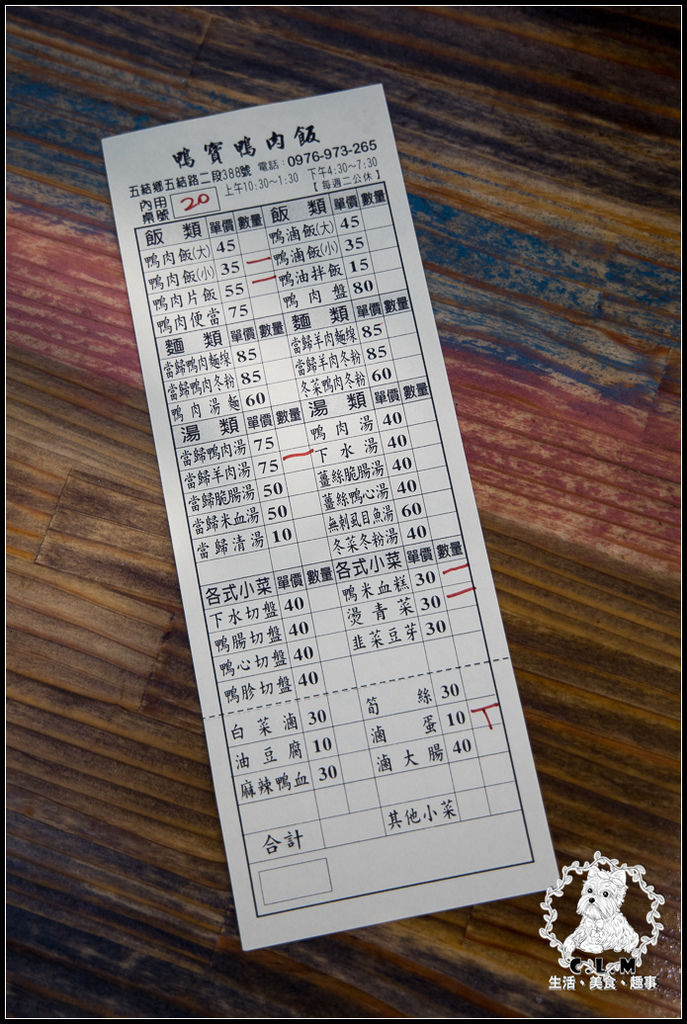 鴨寶鴨肉飯
五結鄉五結路二段388號 電話：0976-973-265
上午10:30～1:30 下午4:30～7:30
【每週二公休】
內用桌號 20
飯類 單價 數量 飯類 單價 數量
鴨肉飯(大) 45 鴨滷飯(大) 45
鴨肉飯(小) 35 一 鴨滷飯(小) 35
鴨肉片飯 55 一 鴨油拌飯 15
鴨肉便當 75 鴨肉盤 80
麵類 單價 數量 麵類 單價 數量
當歸鴨肉麵線 85 當歸羊肉麵線 85
當歸鴨肉冬粉 85 當歸羊肉冬粉 85
鴨肉湯麵 60 冬菜鴨肉冬粉 60
湯類 單價 數量 湯類 單價 數量
當歸鴨肉湯 75 鴨肉湯 40
當歸羊肉湯 75 一 下水湯 40
當歸脆腸湯 50 薑絲脆腸湯 40
當歸米血湯 50 薑絲鴨心湯 40
當歸清湯 10 無刺虱目魚湯 60
冬菜冬粉湯 40
各式小菜 單價 數量 各式小菜 單價 數量
下水切盤 40 鴨米血糕 30 一
鴨腸切盤 40 燙青菜 30 一
鴨心切盤 40 韭菜豆芽 30
鴨胗切盤 40
白菜滷 30 筍絲 30
油豆腐 10 滷蛋 10 丅
麻辣鴨血 30 滷大腸 40
合計 其他小菜
C.L.M
生活、美食、趣事